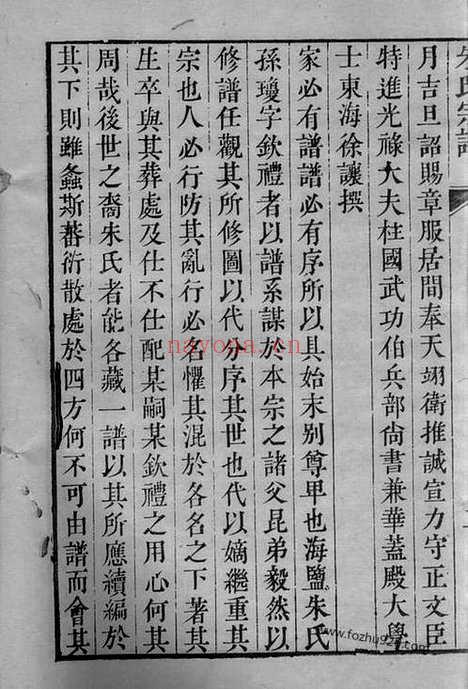 朱氏宗譜
月吉旦詔賜章服居間奉天翊衛推誠宣力守正文臣
特進光祿大夫柱國武功伯兵部尙書兼華蓋殿大學
士東海徐讓撰
家必有譜譜必有序所以具始末别尊卑也海鹽朱氏
孫瓊字欽禮者以譜系謀於本宗之諸父昆弟毅然以
修譜任觀其所修圖以代分序其世也代以嫡繼重其
宗也人必行防其亂行必名懼其混於各名之下著其
生卒與其葬處及仕不仕配某嗣某欽禮之用心何其
周哉後世之裔朱氏者能各藏一譜以其所應續編於
其下則雖螽斯蕃衍散處於四方何不可由譜而會其
nayona.cn
www.fozhu920.com